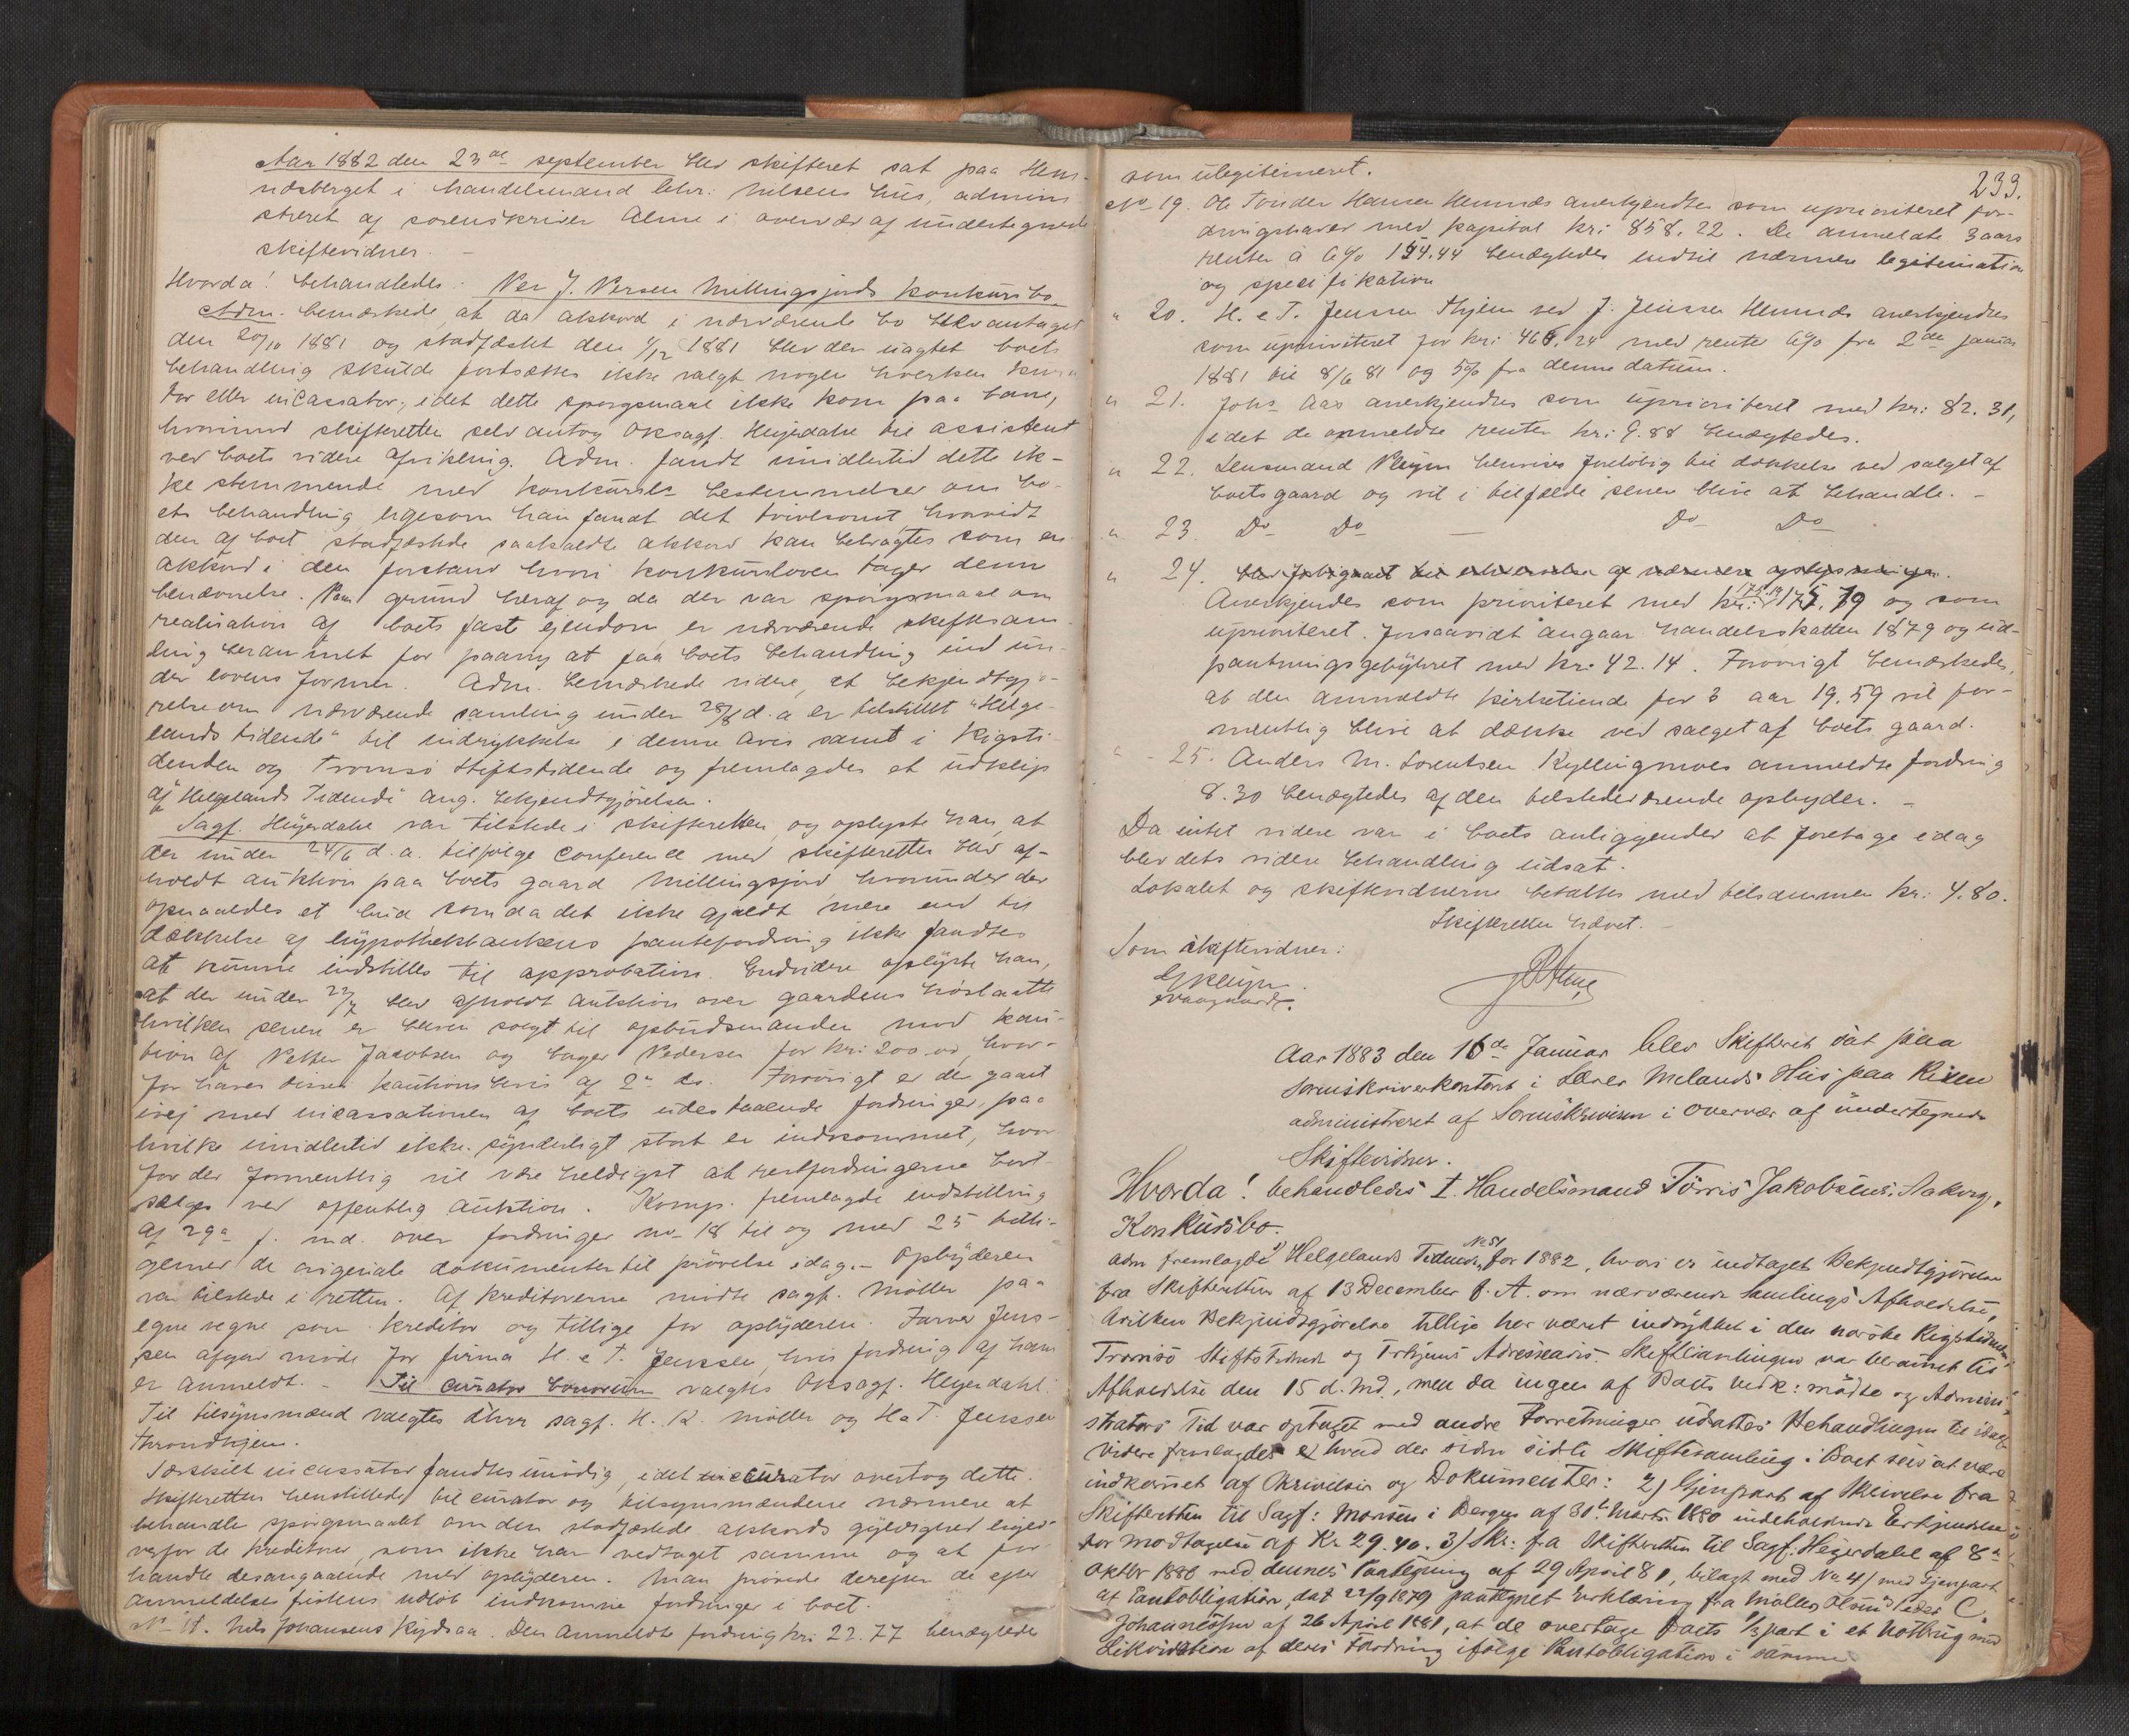 Aar 1882 den 23de september blev skifteret sat paa Hem-
næsberget i handelsmand Chr. Nilsens hus, admini-
streret af sorenskriver Alme i overvær af undertegnede
skiftevidner. –
Hvorda! behandledes: Per J. Persen Millingsjords konkursbo.
Adm. bemærkede, at da akkord i nærværende bo blev antaget
den 20/10 1881 og stadfæstet den 1/12 1881 blev der uagtet boets
behandling skulde fortsættes ikke valgt nogen hverken kura-
tor eller incassator, idet dette spørgsmaal ikke kom paa bane,
hvorimod skifteretten selv antog Oksagf. Heyerdahl til assistent
ved boets videre afvikling. Adm. fandt imidlertid dette ik-
ke stemmende med konkursls bestemmelser om bo-
ets behandling ligesom han fandt det tvivlsomt hvorvidt
den af boet stadfæstede saakaldte akkord kan betragtes som en
akkord i den forstand hvori konkursloven tager denne
benævnelse. Paa grund heraf og da der var spørgsmaal om
realisation af boets faste ejendom er nærværende skiftesam-
ling berammet for paany at faa boets behandling ind un-
der lovens former. Adm. bemærkede videre, at bekjendtgjø-
relse om nærværende samling under 28/8 d.a. er tilstillet "Helge-
lands tidende" til indrykkelse i denne avis samt i Rigsti-
denden og Tromsø Stiftstidende og fremlagdes et udklip
af "Helgelands Tidende" ang. bekjendtgjørelsen.
Sagf. Heyerdahl var tilstede i skifteretten og oplyste han, at
der under 24/6 d.a. tilfølge conference med skifteretten blev af-
holdt auktion paa boets gaard Millingsjord, hvorunder der
opnaaedes et bud som da det ikke gjældt mere end til
dækkelse af hypothekbankens pantefordring ikke fandtes
at kunne indstilles til approbation. Endvidere oplyste han,
at der under 22/7 blev afholdt auktion over gaardens høslaatte
hvilken senere er bleven solgt til opbudsmanden mod kau-
tion af Petter Jacobsen og bager Pedersen for kr: 200.00, hvor-
for haves disses kautionsbevis af 2n ds. Forøvrigt er der gaaet
ivej med incassationen af boets udestaaende fordringer, paa
hvilke imidlertid ikke synderligt stort er indkommet, hvor-
for der formentlig vil være heldigst at restfordringerne bort-
sælges ved offentlig auktion. Komp. fremlagde indstilling
af 29n f. md. over fordringer no 18 til og med 25 tilli-
gemed de originale dokumenter til prøvelse idag. – Opbyderen
var tilstede i retten. Af kreditorerne mødte sagf. Møller paa
egne vegne som kreditor og tillige for opbyderen. Farver Jens-
sen afgav møde for firma H. & T. Jenssen, hvis fordring af ham
er anmeldt. – Til curator bonorum valgtes Oksagf. Heyerdahl.
Til tilsynsmænd valgtes dhrr sagf. H. K. Møller og H & T. Jenssen
Throndhjem.
Særskilt incassator fandtes unødig, idet curator overtog dette.
Skifteretten henstillede til curator og tilsynsmændene nærmere at
behandle spørgsmaalet om den stadfæstede akkords gyldighed lige-
overfor de kreditorer, som ikke har vedtaget samme og at for-
handle desangaaende med opbyderen. Man prøvede derefter de efter
anmeldelsesfristens udløb indkomne fordringer i boet.
No 18. Nils Johansens Rydsaa. Den anmeldte fordring kr: 22.77 benægtede
233.
som ulegitimeret.
No 19. Ole Tønder Hansen Hemnæs anerkjendtes som uprioriteret for-
dringshaver med kapital kr: 858.22. De anmeldte 3 aars
renter à 6% 154.44 benægtedes indtil nærmere legitimation
og spesifikation
" 20. H. & T. Jenssen Thjem ved J. Jenssen Hemnæs anerkjendtes
som uprioriteret for kr: 466.24 med renter 6% fra 2den januar
1881 til 8/6 81 og 5% fra denne datum.
" 21. Johs Aas anerkjendtes som uprioriteret med kr: 82.31,
idet de anmeldte renter kr: 9.88 benægtedes.
" 22. Lensmand Kleyn henvises foreløbig til dækkelse ved salget af
boets gaard og vil i tilfælde senere blive at behandle. –
" 23. Do Do — Do Do
" 24.
Anerkjendes som prioriteret med kr: 175.79 og som
uprioriteret. forsaavidt angaar handelsskatten 1879 og ud-
pantningsgebyhret med kr: 42.14. Forøvrigt bemærkedes,
at den anmeldte kirketiende for 3 aar 19.59 vil for-
mentlig blive at dække ved salget af boets gaard.
" 25. Anders M. Lorentsen Kyllingmoes anmeldte fordring
8.30 benægtedes af den tilstedeværende opbyder. –
Da intet videre var i boets anliggender at foretage idag
blev dets videre behandling udsat.
Lokalet og skiftevidnerne betaltes med tilsammen kr: 4.80.
Skifteretten hævet. –
Som skiftevidner:
Aar 1883 den 16de Januar blev Skifteret sat paa
Sorenskriverkontoret i Lærer Melands Hus paa
administreret af Sorenskriveren i Overvær af undertegnede
Skiftevidner.
Hvorda! behandledes I. Handelsmand Tørris Jakobsens,
Konkursbo.
Adm fremlagde 1) Helgelands Tidende No 51 for 1882, hvori er indtaget Bekjendtgjørelse
fra Skifteretten af 13 December f. A. om nærværende Samlings Afholdelse,
hvilken Bekjendtgjørelse tillige har været indrykket i den norske Rigstidende,
Tromsø Stiftstidende og Trhjems Adresseavis. Skiftesamlingen var berammet til
Afholdelse den 15 d. Md., men da ingen af Boets Vedk: mødte og Admini-
strators Tid var optaget med andre Forretninger udsattes Behandlingen til idag
Videre fremlagdes hvad der siden sidste Skiftesamling i Boet sees at være
indkommet af Skrivelser og Dokumenter: 2) Gjenpart af Skrivelse fra
Skifteretten til Sagf: Monsen i Bergen af 31te Marts 1880 indeholdende Erkjendelse
for Modtagelse af Kr 29.40. 3) Skr: fra Skifteretten til Sagf. Heyerdahl af 8de
Oktbr 1880 med dennes Paategning af 29 April 81, bilagt med No 4) med Gjenpart
af Pantobligation, dat 22/9 1879 paategnet Erklæring fra Møller Olsen
Johannessen af 26 April 1881, at de overtage Boets 1/3 part i et Notbrug med
Likvidation af deres Fordring ifølge Pantobligation i samme